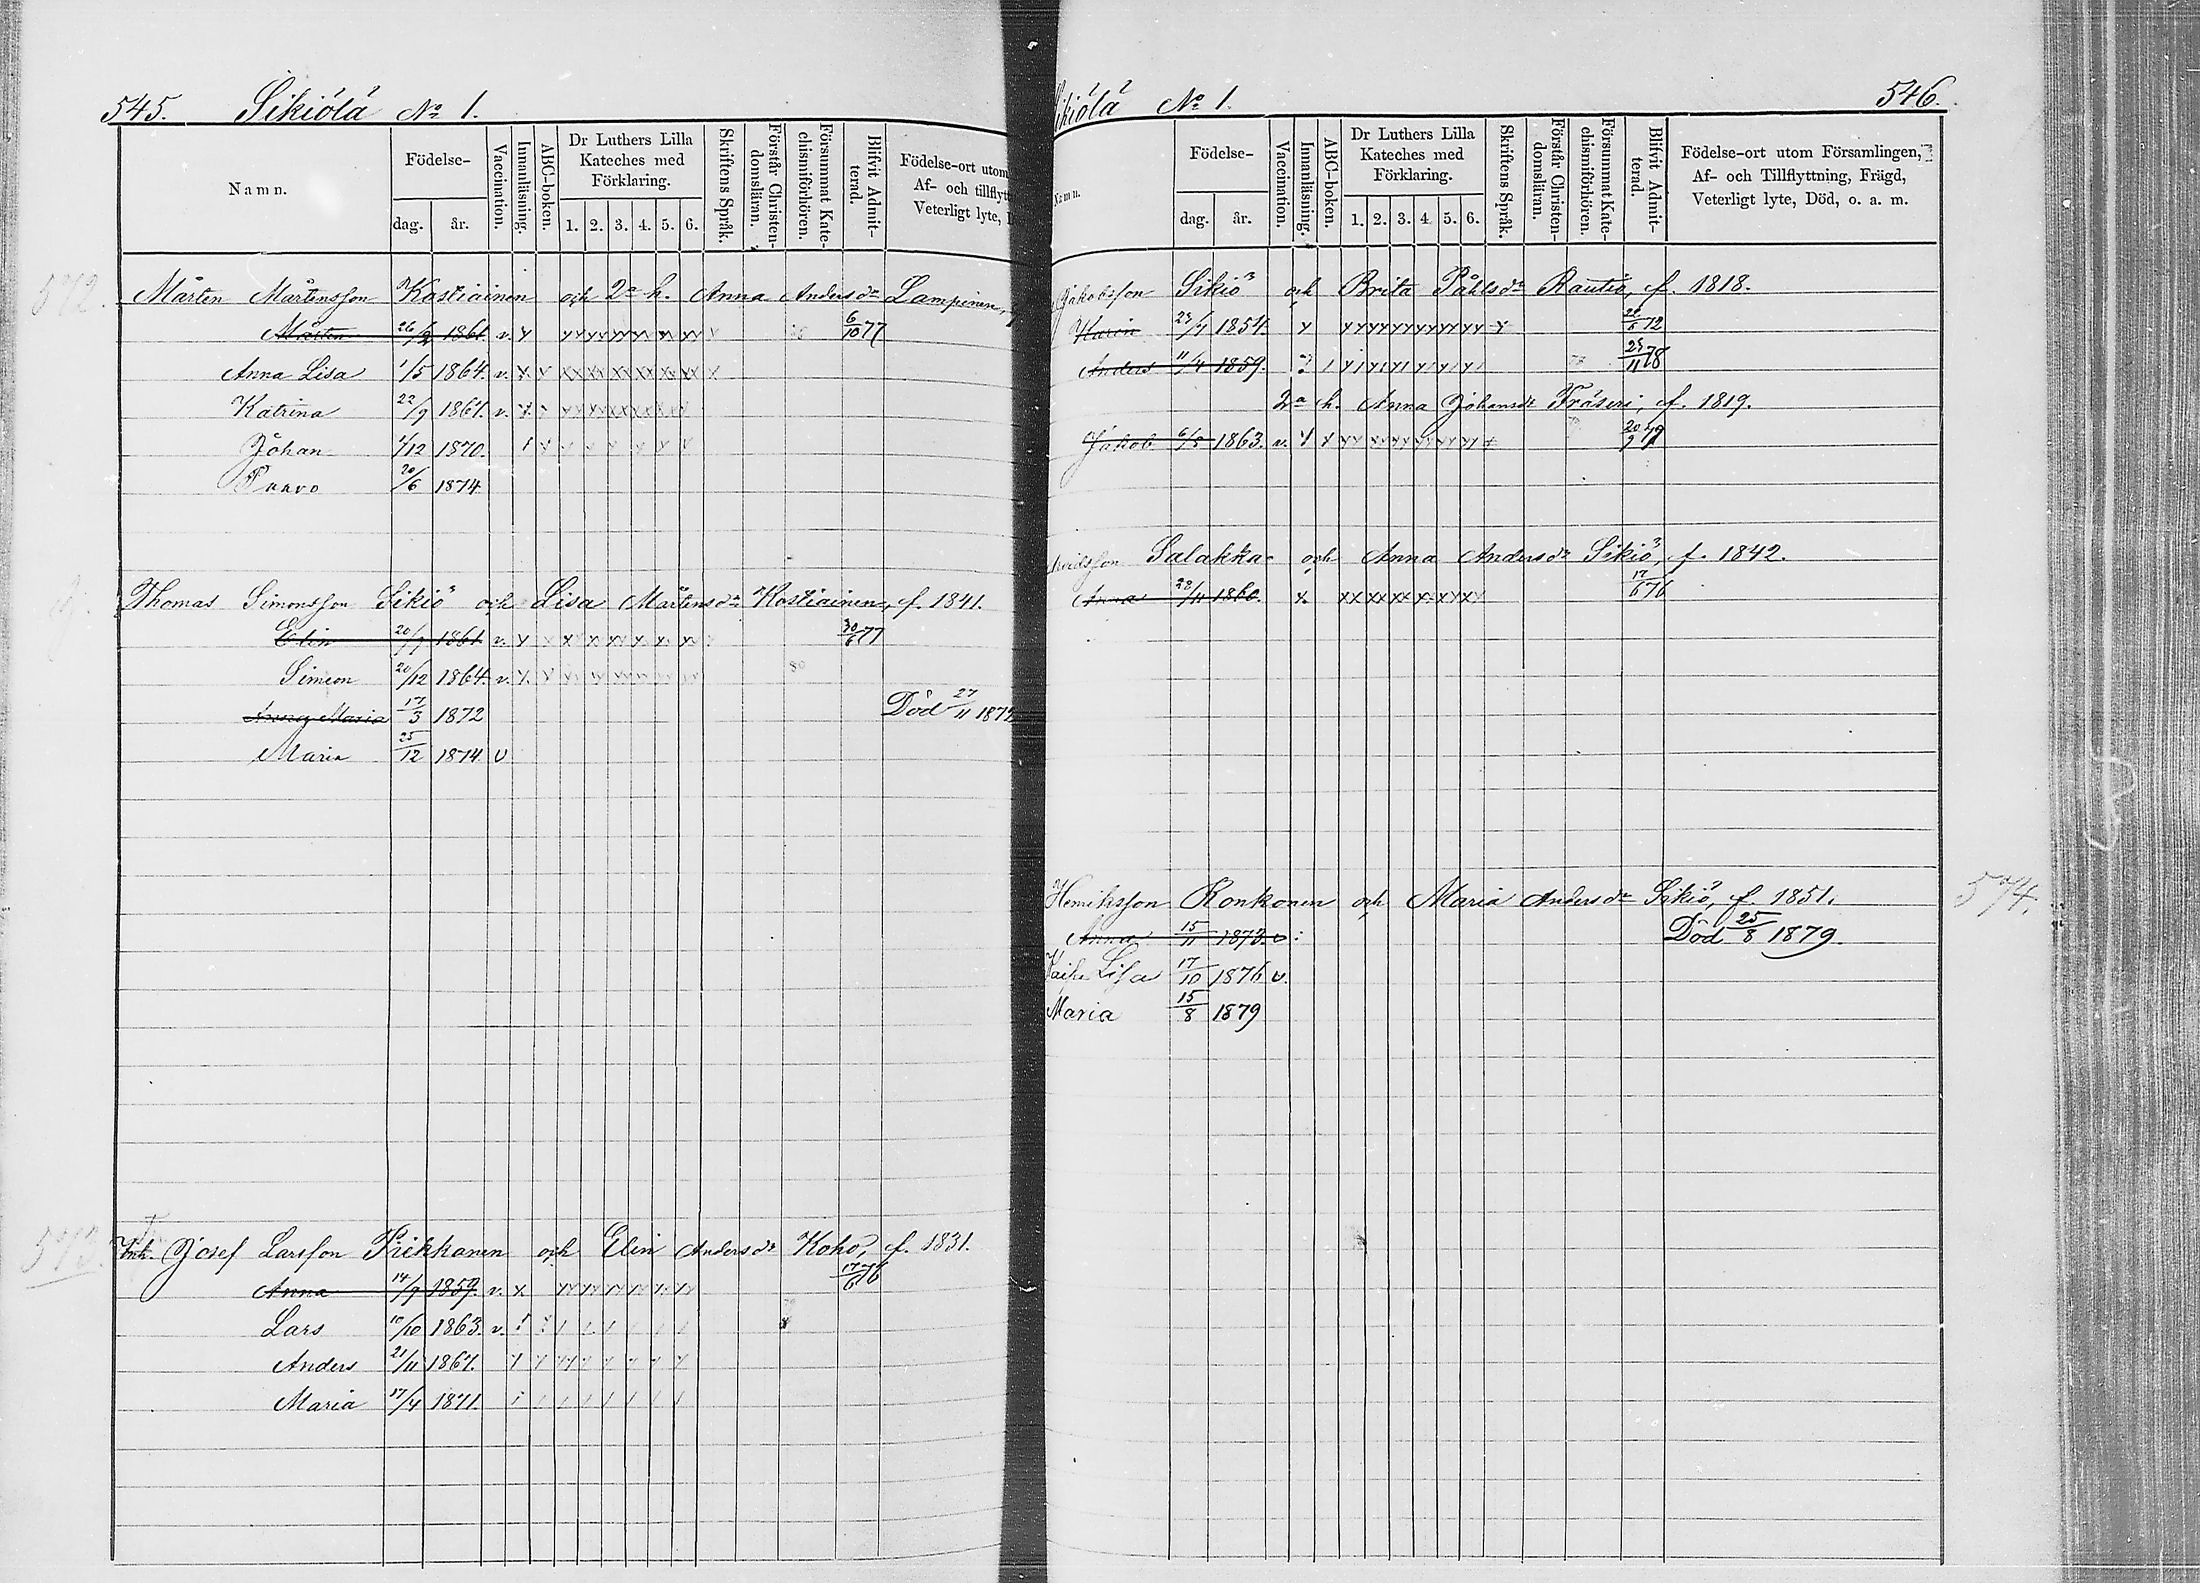 545. Sikiölä No 1.
Namn.
Födelse-
dag. år.
Vaccination.
Innanläsning.
ABC-boken.
Dr Luthers Lilla Kateches med Förklaring.
1. 2. 3. 4. 5. 6.
Skriftens Språk.
Förstår Christendomsläran.
Försummat Katechismiförhören.
Blifvit Admitterad.
Födelse-ort utom
Af- och tillflytt
Veterligt lyte,
572.
Mårten Mårtensson Kostiainen och 2a h. Anna Andersdr Lampinen,
Mårten 1861 v. 6/10 77
Anna Lisa 1/5 1864. v.
Katrina 22/9 1867. v.
Johan 1/12 1870.
Paavo 20/6 1874
Thomas Simonsson Sikiö och Lisa Mårtensdr Kostiainen, f. 1841.
Elin 20/7 1861 v. 30/6 77
Simeon 20/12 1864. v. 80
Anna Maria 17/3 1872 Död 27/11 187
Maria 25/12 1874 v
573.
Inh. Josef Larsson Pirkkanen och Elin Andersdr Koho, f. 1831.
Anna 14/9 1859. v. 17/6 76
Lars 10/10 1863. v.
Anders 21/11 1867.
Maria 17/4 1871.
ikiölä No 1. 546.
Namn.
Födelse-
dag. år.
Vaccination.
Innanläsning.
ABC-boken.
Dr Luthers Lilla Kateches med Förklaring.
1. 2. 3. 4. 5. 6.
Skriftens Språk.
Förstår Christendomsläran.
Försummat Katechismiförhören.
Blifvit Admitterad.
Födelse-ort utom Församlingen,
Af- och Tillflyttning, Frägd,
Veterligt lyte, Död, o. a. m.
Jakobsson Sikiö och Brita Påhlsdr Rautio, f. 1818.
Karin 23/4 1854. 72
Anders 11/4 1859. 78
2a h. Anna Johansdr Fröseri, f. 1819.
Jakob 6/8 1863. v.
Salakka och Anna Andersdr Sikiö, f. 1842.
Anna 28/11 1860. 17/6 76
Henriksson Ronkonen och Maria Andersdr Sikiö, f. 1851.
574.
Anna 15/11 1873. v Död 25/8 1879.
Kaisa Lisa 17/10 1876 v.
Maria 15/8 1879